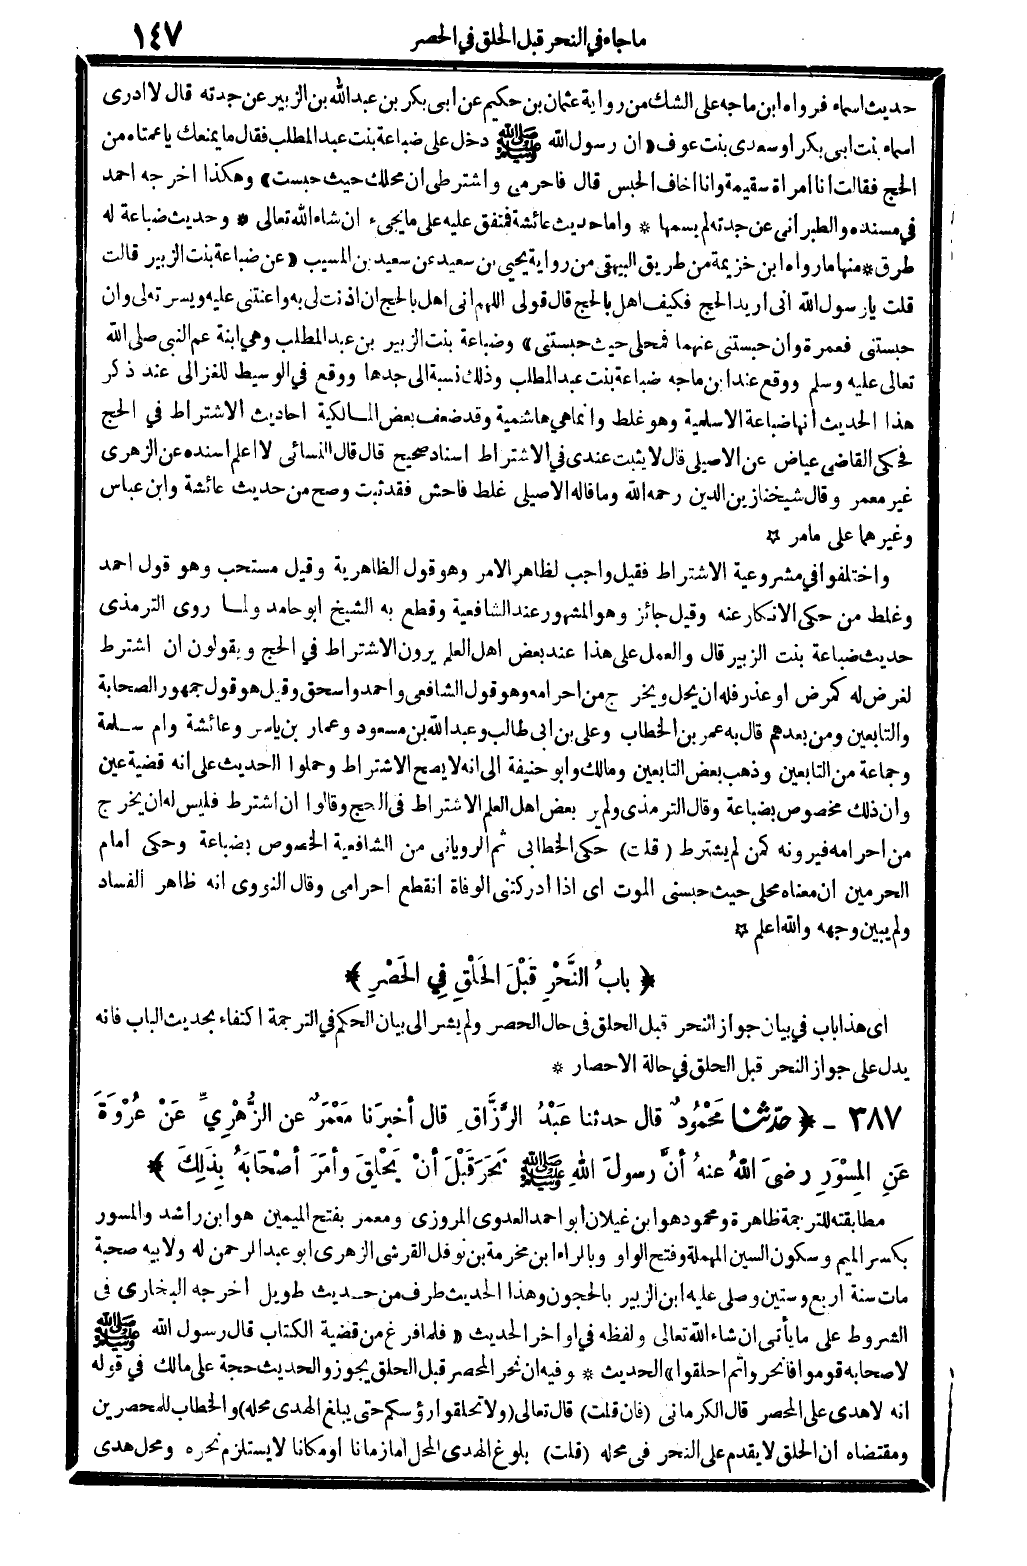 ماجاء في النحر قبل الحلق في الحصر ١٤٧
حديث اسماء فرواه ابن ماجه على الشك من رواية عثمان بن حكيم عن ابى بكر بن عبدالله بن الزبير عن جدته قال لا ادرى
اسماء بنت ابى بكر او سعدى بنت عوف «ان رسول الله ﷺ دخل على ضباعة بنت عبد المطلب فقال ما يمنعك ياعمتاه من
الحج فقالت انا امراة سقيمة وانا اخاف الحبس قال فاحرمى واشترطى ان محلك حيث حبست» وهكذا اخرجه احمد
في مسنده والطبرانى عن جدته لم يسمها * واما حديث عائشة فمتفق عليه على ما يجىء ان شاء الله تعالى * وحديث ضباعة له
طرق * منها ما رواه ابن خزيمة من طريق البيهقى من رواية يحيى بن سعيد عن سعيد بن المسيب «عن ضباعة بنت الزبير قالت
قلت يارسول الله انى اريد الحج فكيف اهل بالحج قال قولى اللهم انى اهل بالحج ان اذنت لى به واعنتنى عليه ويسرته لى وان
حبستنى فعمرة وان حبستنى عنهما فمحلى حيث حبستنى» وضباعة بنت الزبير بن عبد المطلب وهي ابنة عم النبى صلى الله
تعالى عليه وسلم ووقع عند ابن ماجه ضباعة بنت عبد المطلب وذلك نسبة الى جدها ووقع في الوسيط للغزالى عند ذكر
هذا الحديث أنها ضباعة الاسلمية وهو غلط وانما هي هاشمية وقد ضعف بعض المالكية احاديث الاشتراط في الحج
فحكى القاضى عياض عن الاصيلى قال لا يثبت عندى في الاشتراط اسناد صحيح قال قال النسائى لا اعلم اسنده عن الزهرى
غير معمر وقال شيخنا زين الدين رحمه الله وما قاله الاصيلى غلط فاحش فقد ثبت وصح من حديث عائشة وابن عباس
وغيرهما على مامر ✡
واختلفوا في مشروعية الاشتراط فقيل واجب لظاهر الامر وهو قول الظاهرية وقيل مستحب وهو قول احمد
وغلط من حكى الانكار عنه وقيل جائز وهو المشهور عند الشافعية وقطع به الشيخ ابو حامد ولما روى الترمذى
حديث ضباعة بنت الزبير قال والعمل على هذا عند بعض اهل العلم يرون الاشتراط في الحج ويقولون ان اشترط
لغرض له كمرض او عذر فله ان يحل ويخرج من احرامه وهو قول الشافعى واحمد واسحق وقيل هو قول جمهور الصحابة
والتابعين ومن بعدهم قال به عمر بن الخطاب وعلى بن ابى طالب وعبدالله بن مسعود وعمار بن ياسر وعائشة وام سلمة
وجماعة من التابعين وذهب بعض التابعين ومالك وابو حنيفة الى انه لا يصح الاشتراط وحملوا الحديث على انه قضية عين
وان ذلك مخصوص بضباعة وقال الترمذى ولم ير بعض اهل العلم الاشتراط فى الحج وقالوا ان اشترط فليس له ان يخرج
من احرامه فيرونه كمن لم يشترط (قلت) حكى الخطابى ثم الرويانى من الشافعية الخصوص بضباعة وحكى امام
الحرمين ان معناه محلى حيث حبسنى الموت اى اذا ادركتنى الوفاة انقطع احرامى وقال النووى انه ظاهر الفساد
ولم يبين وجهه والله اعلم ✡
﴿ بابُ النَّحْرِ قَبْلَ الحَلْقِ فِي الحَصْرِ ﴾
اى هذا باب في بيان جواز النحر قبل الحلق فى حال الحصر ولم يشر الى بيان الحكم في الترجمة اكتفاء بحديث الباب فانه
يدل على جواز النحر قبل الحلق في حالة الاحصار *
٣٨٧ - ﴿ حَدَّثَنَا مَحْمُودٌ قال حدثنا عَبْدُ الرَّزَّاقِ قال أخبرَنا مَعْمَرٌ عن الزُّهْرِيِّ عَنْ عُرْوَةَ
عَنِ المِسْوَرِ رضىَ اللهُ عنهُ أنَّ رسولَ اللهِ ﷺ نَحَرَ قَبْلَ أنْ يَحْلِقَ وأمَرَ أصْحَابَهُ بِذَلِكَ ﴾
مطابقته للترجمة ظاهرة ومحمود هو ابن غيلان أبو احمد العدوى المروزى ومعمر بفتح الميمين هو ابن راشد والمسور
بكسر الميم وسكون السين المهملة وفتح الواو وبالراء ابن مخرمة بن نوفل القرشى الزهرى ابو عبد الرحمن له ولابيه صحبة
مات سنة اربع وستين وصلى عليه ابن الزبير بالحجون وهذا الحديث طرف من حديث طويل أخرجه البخارى فى
الشروط على ما يأتى ان شاء الله تعالى ولفظه في اواخر الحديث «فلما فرغ من قضية الكتاب قال رسول الله ﷺ
لاصحابه قوموا فانحروا ثم احلقوا» الحديث * وفيه ان نحر المحصر قبل الحلق يجوز والحديث حجة على مالك في قوله
انه لا هدى على المحصر قال الكرمانى (فان قلت) قال تعالى (ولا تحلقوا رؤسكم حتى يبلغ الهدى محله) والخطاب للمحصرين
ومقتضاه ان الحلق لا يقدم على النحر فى محله (قلت) بلوغ الهدى المحل اما زمانا او مكانا لا يستلزم نحره ومحل هدى